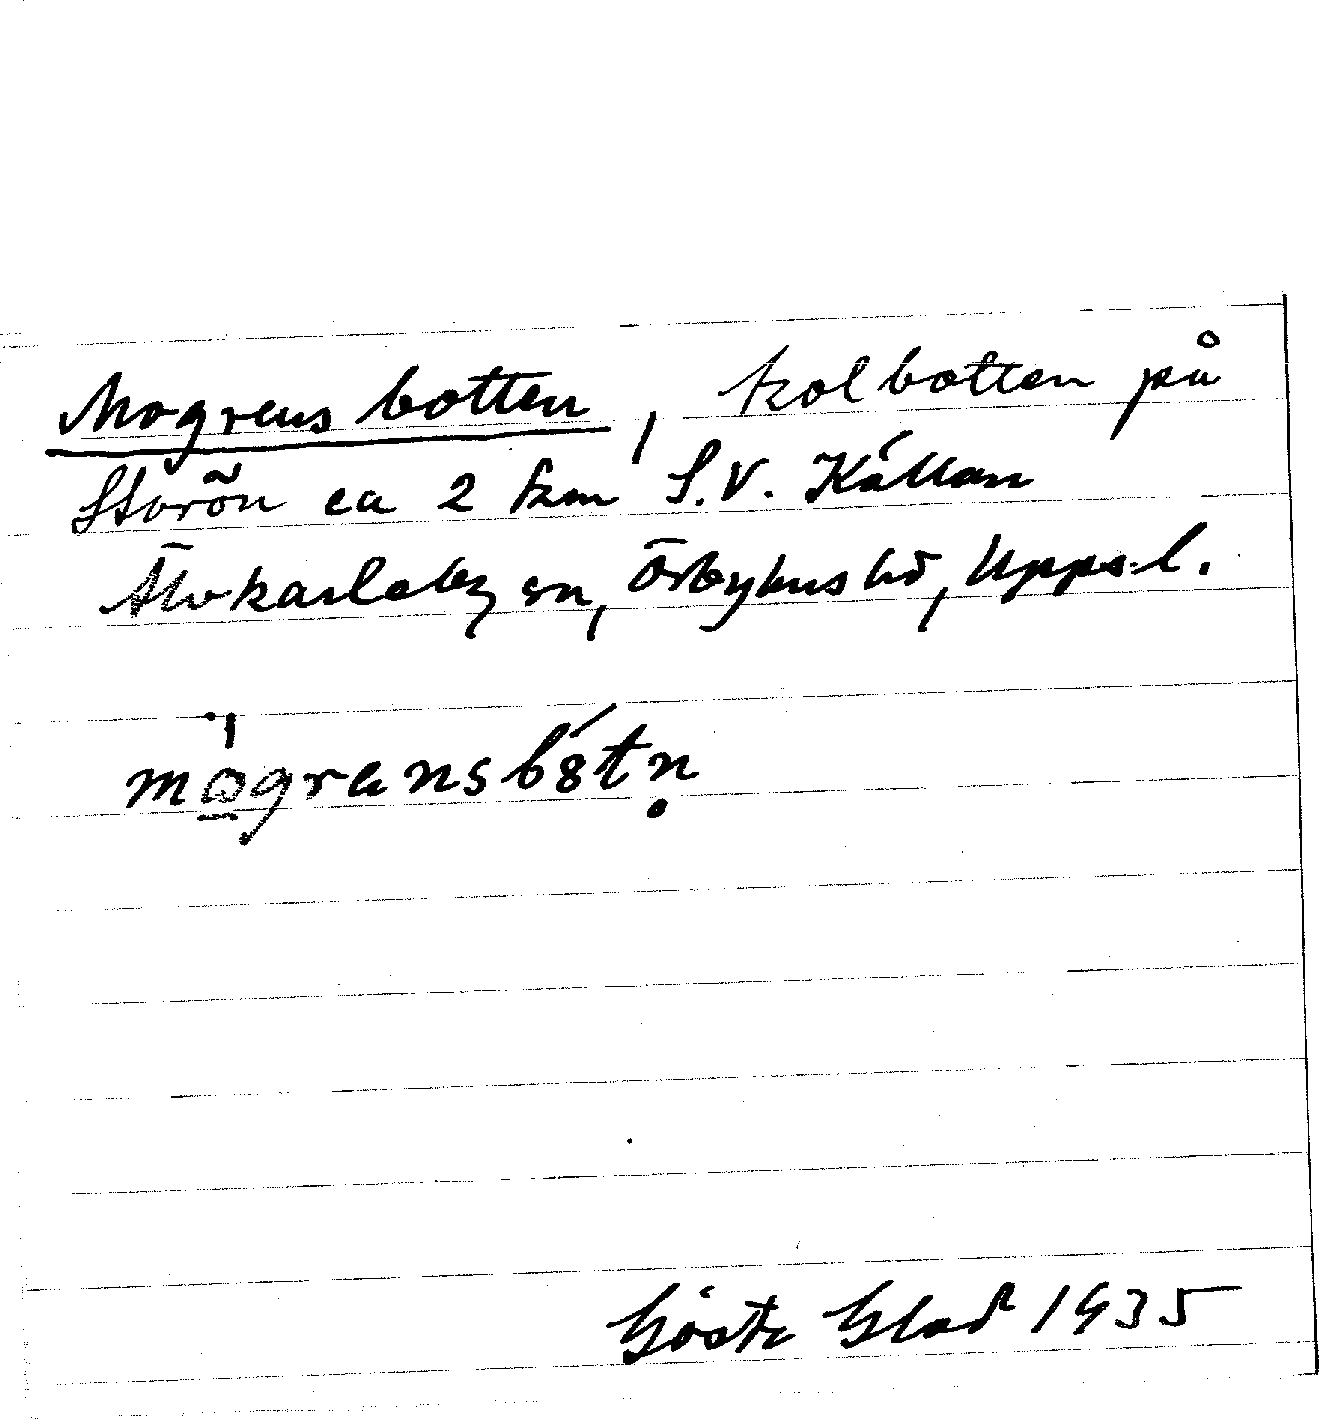 Mogrens botten, kolbotten på
Storön ca 2 km S.V. Källan
Älvkarleby sn, Örbyhus hd, Upps. l.
Gösta Glad 1935